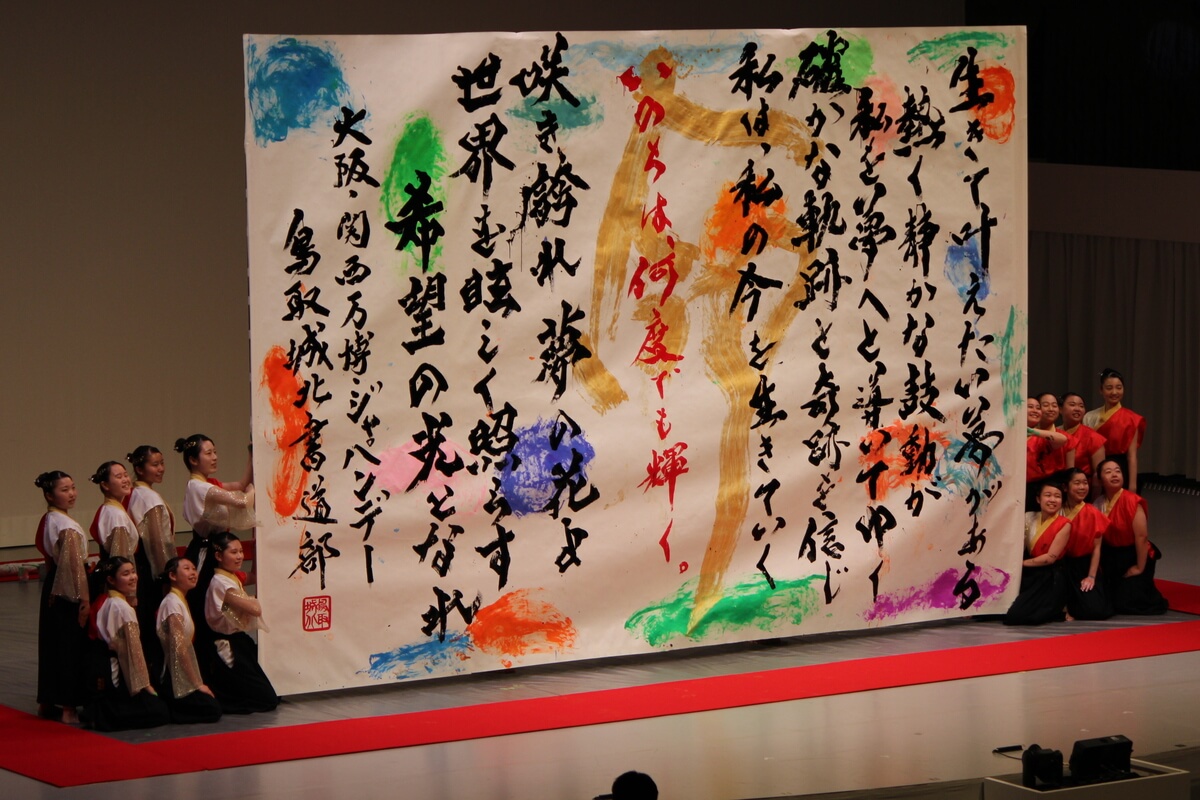 生きて叶えたい夢がある
熱く静かな鼓動が
私を夢へと導いてゆく
確かな軌跡と奇跡を信じ
私は、私の今を生きていく
いのちは、何度でも輝く。
咲き誇れ 夢の花よ
世界を眩しく照らす
希望の光となれ
大阪・関西万博ジャパンデー
鳥取城北書道部
鳥取城北